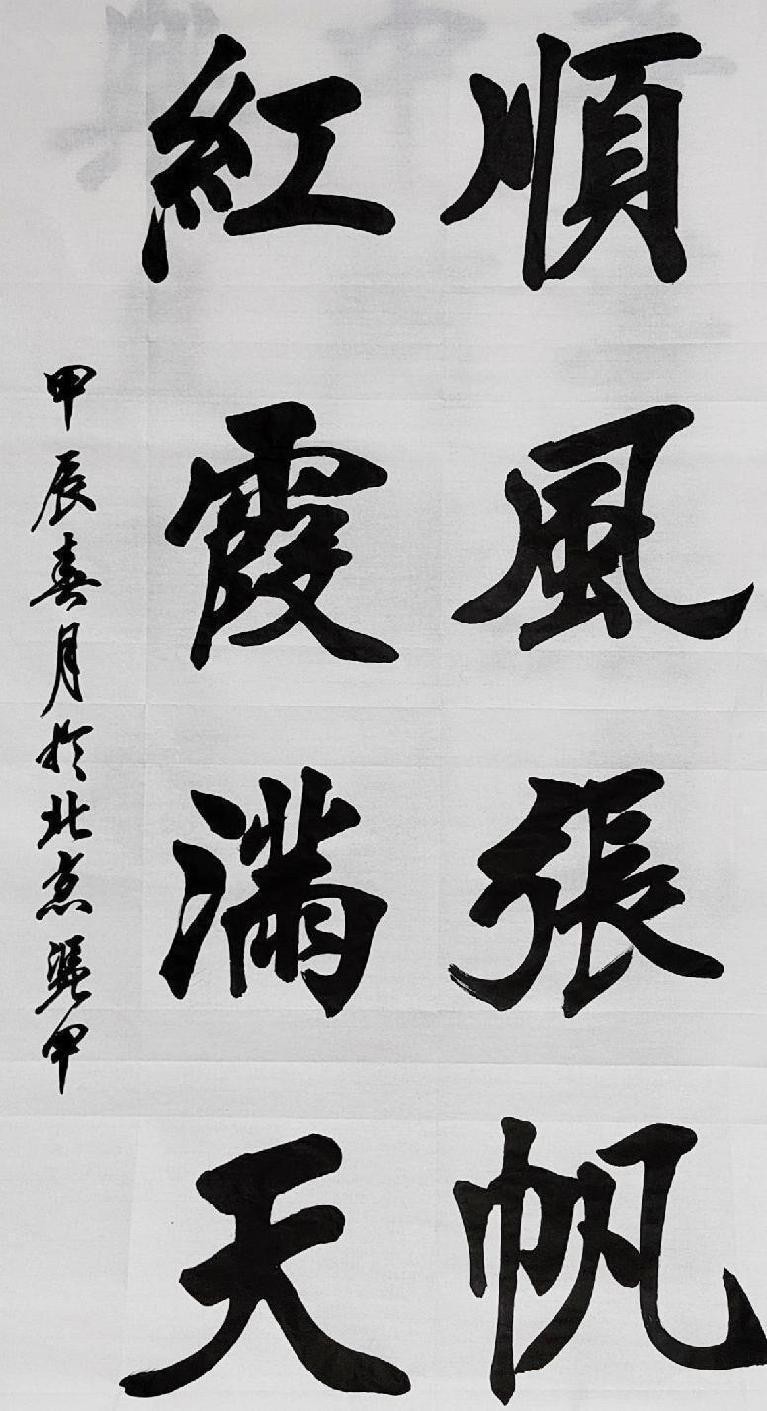 順風張帆
紅霞滿天
甲辰春月於北京
甲